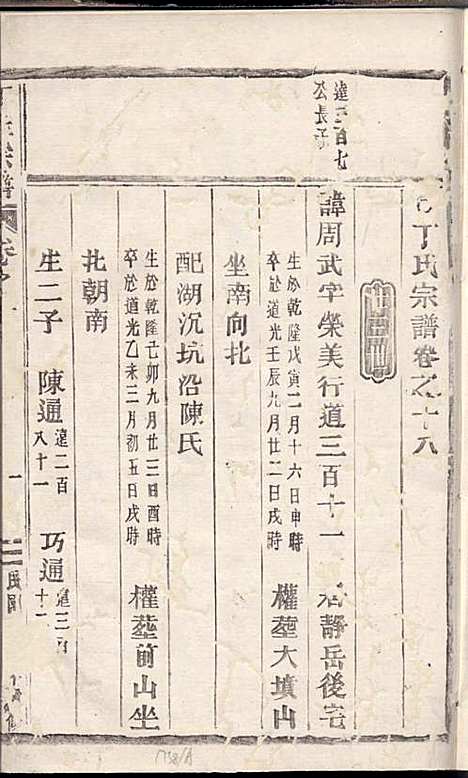 丁氏宗譜卷之十八
達三百七
公長子
諱周武字榮美行道三百十一 居靜岳後宅
生於乾隆戊寅二月十六日申時
卒於道光壬辰九月廿二日戌時 權塟大墳山
坐南向北
配湖沉坑沿陳氏
生於乾隆己卯九月廿三日酉時
卒於道光乙未三月初五日戌時 權塟前山坐
北朝南
生二子 陳通 達二百八十一 巧通 達三百十二